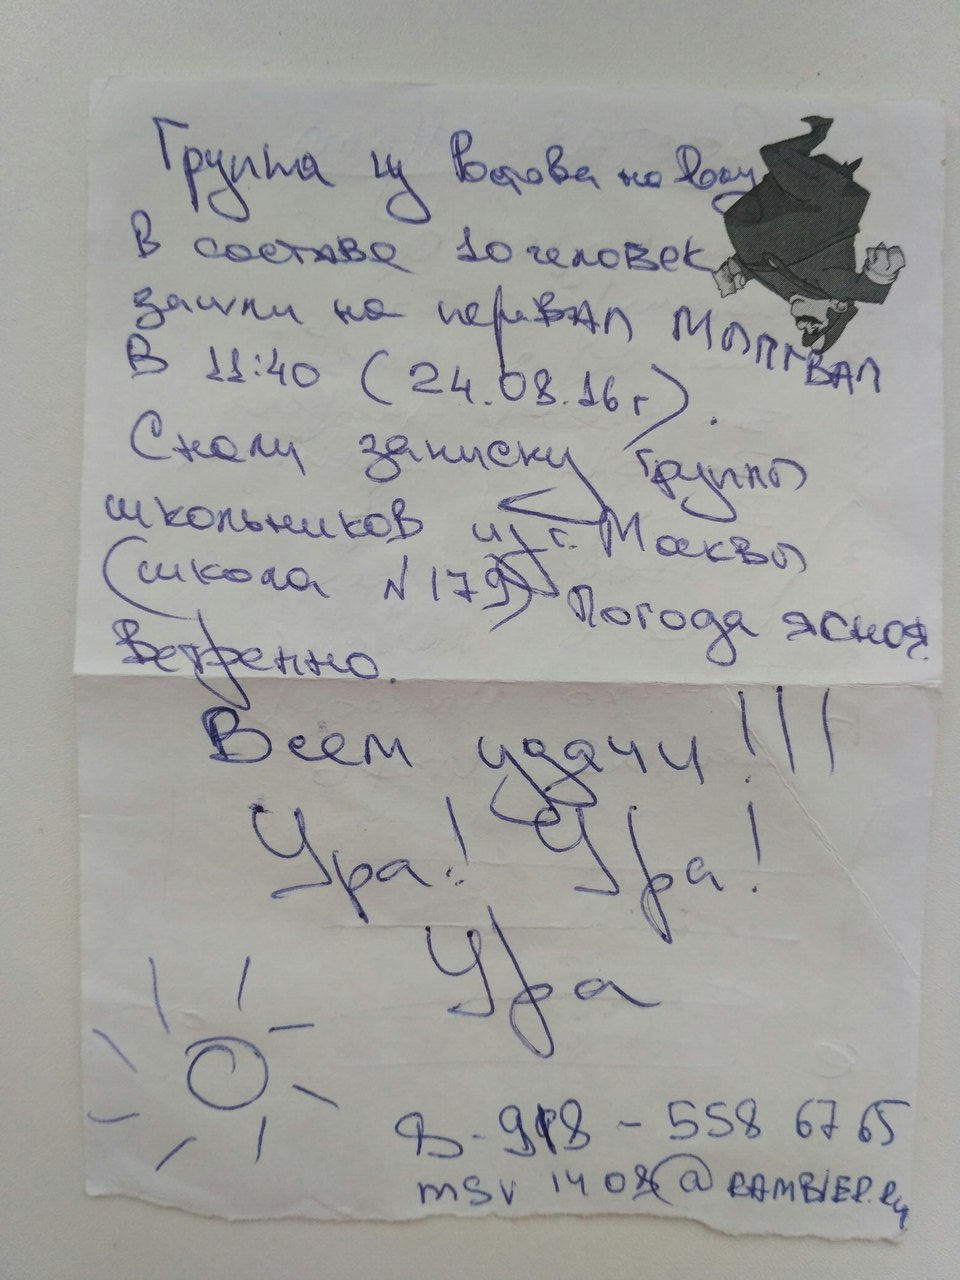 Группа из Ростова на Дону
В составе 10 человек
зашли на перевал
В 11:40 (24.08.16г).
Сняли записку группы
школьников из г. Москвы
(школа N179) Погода ясная
Ветренно.
Всем удачи!!!
Ура! Ура!
Ура
8-918-558 67 65
msv 1408@RAMBLER.Ru